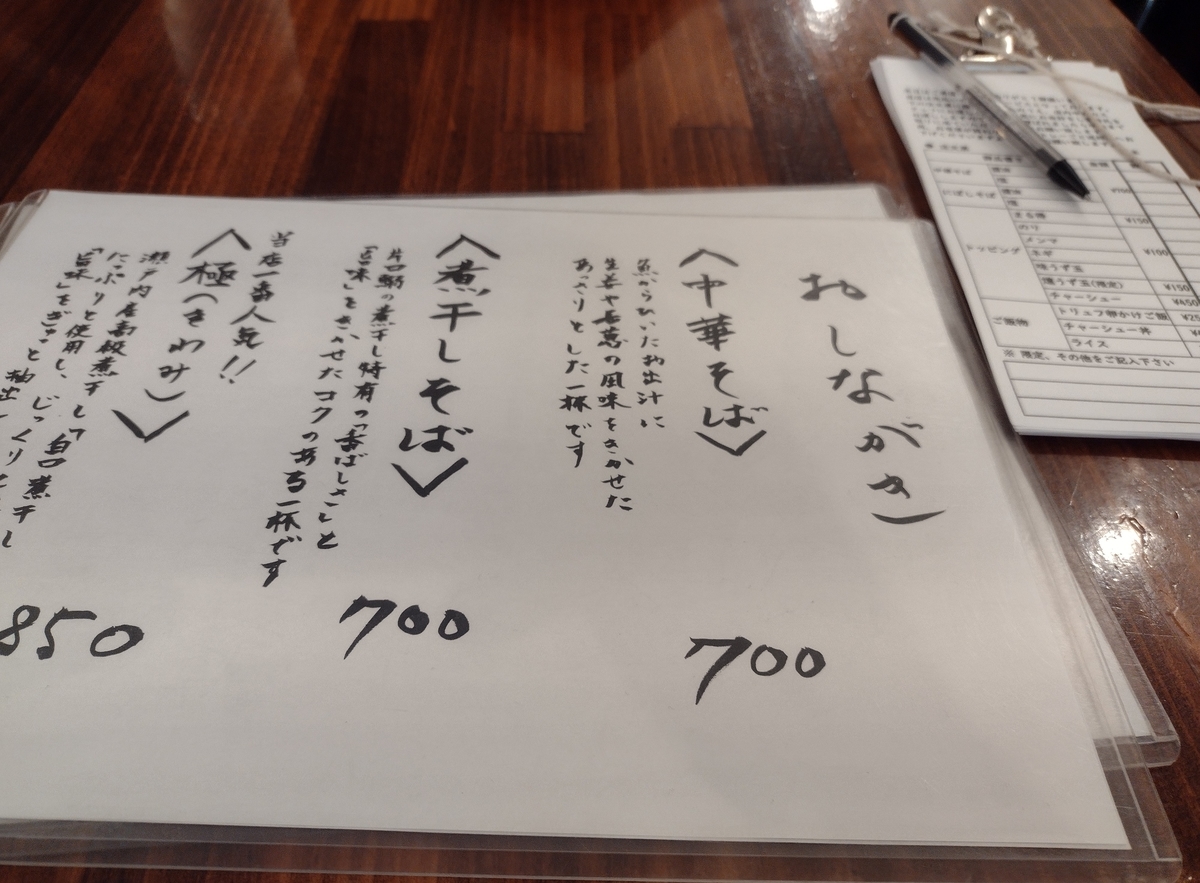 おしながき
〈中華そば〉
魚からひいたお出汁に
生姜や長葱の風味をきかせた
あっさりとした一杯です
700
〈煮干しそば〉
片口鰯の煮干し特有の「香ばしさ」と
「旨味」をきかせたコクのある一杯です
700
当店一番人気!!
〈極(きわみ)〉
瀬戸内産高級煮干し「白口煮干し
たっぷりと使用し、じっくりと
「旨味」をぎゅっと抽出し
850
中華そば
にぼしそば
トッピング
のり
メンマ
ネギ
味うず玉
味うず玉(限定)
チャーシュー
¥150
¥100
¥150
¥450
ご飯物
トリュフ卵かけご飯
チャーシュー丼
ライス
※ 限定、その他をご記入下さい